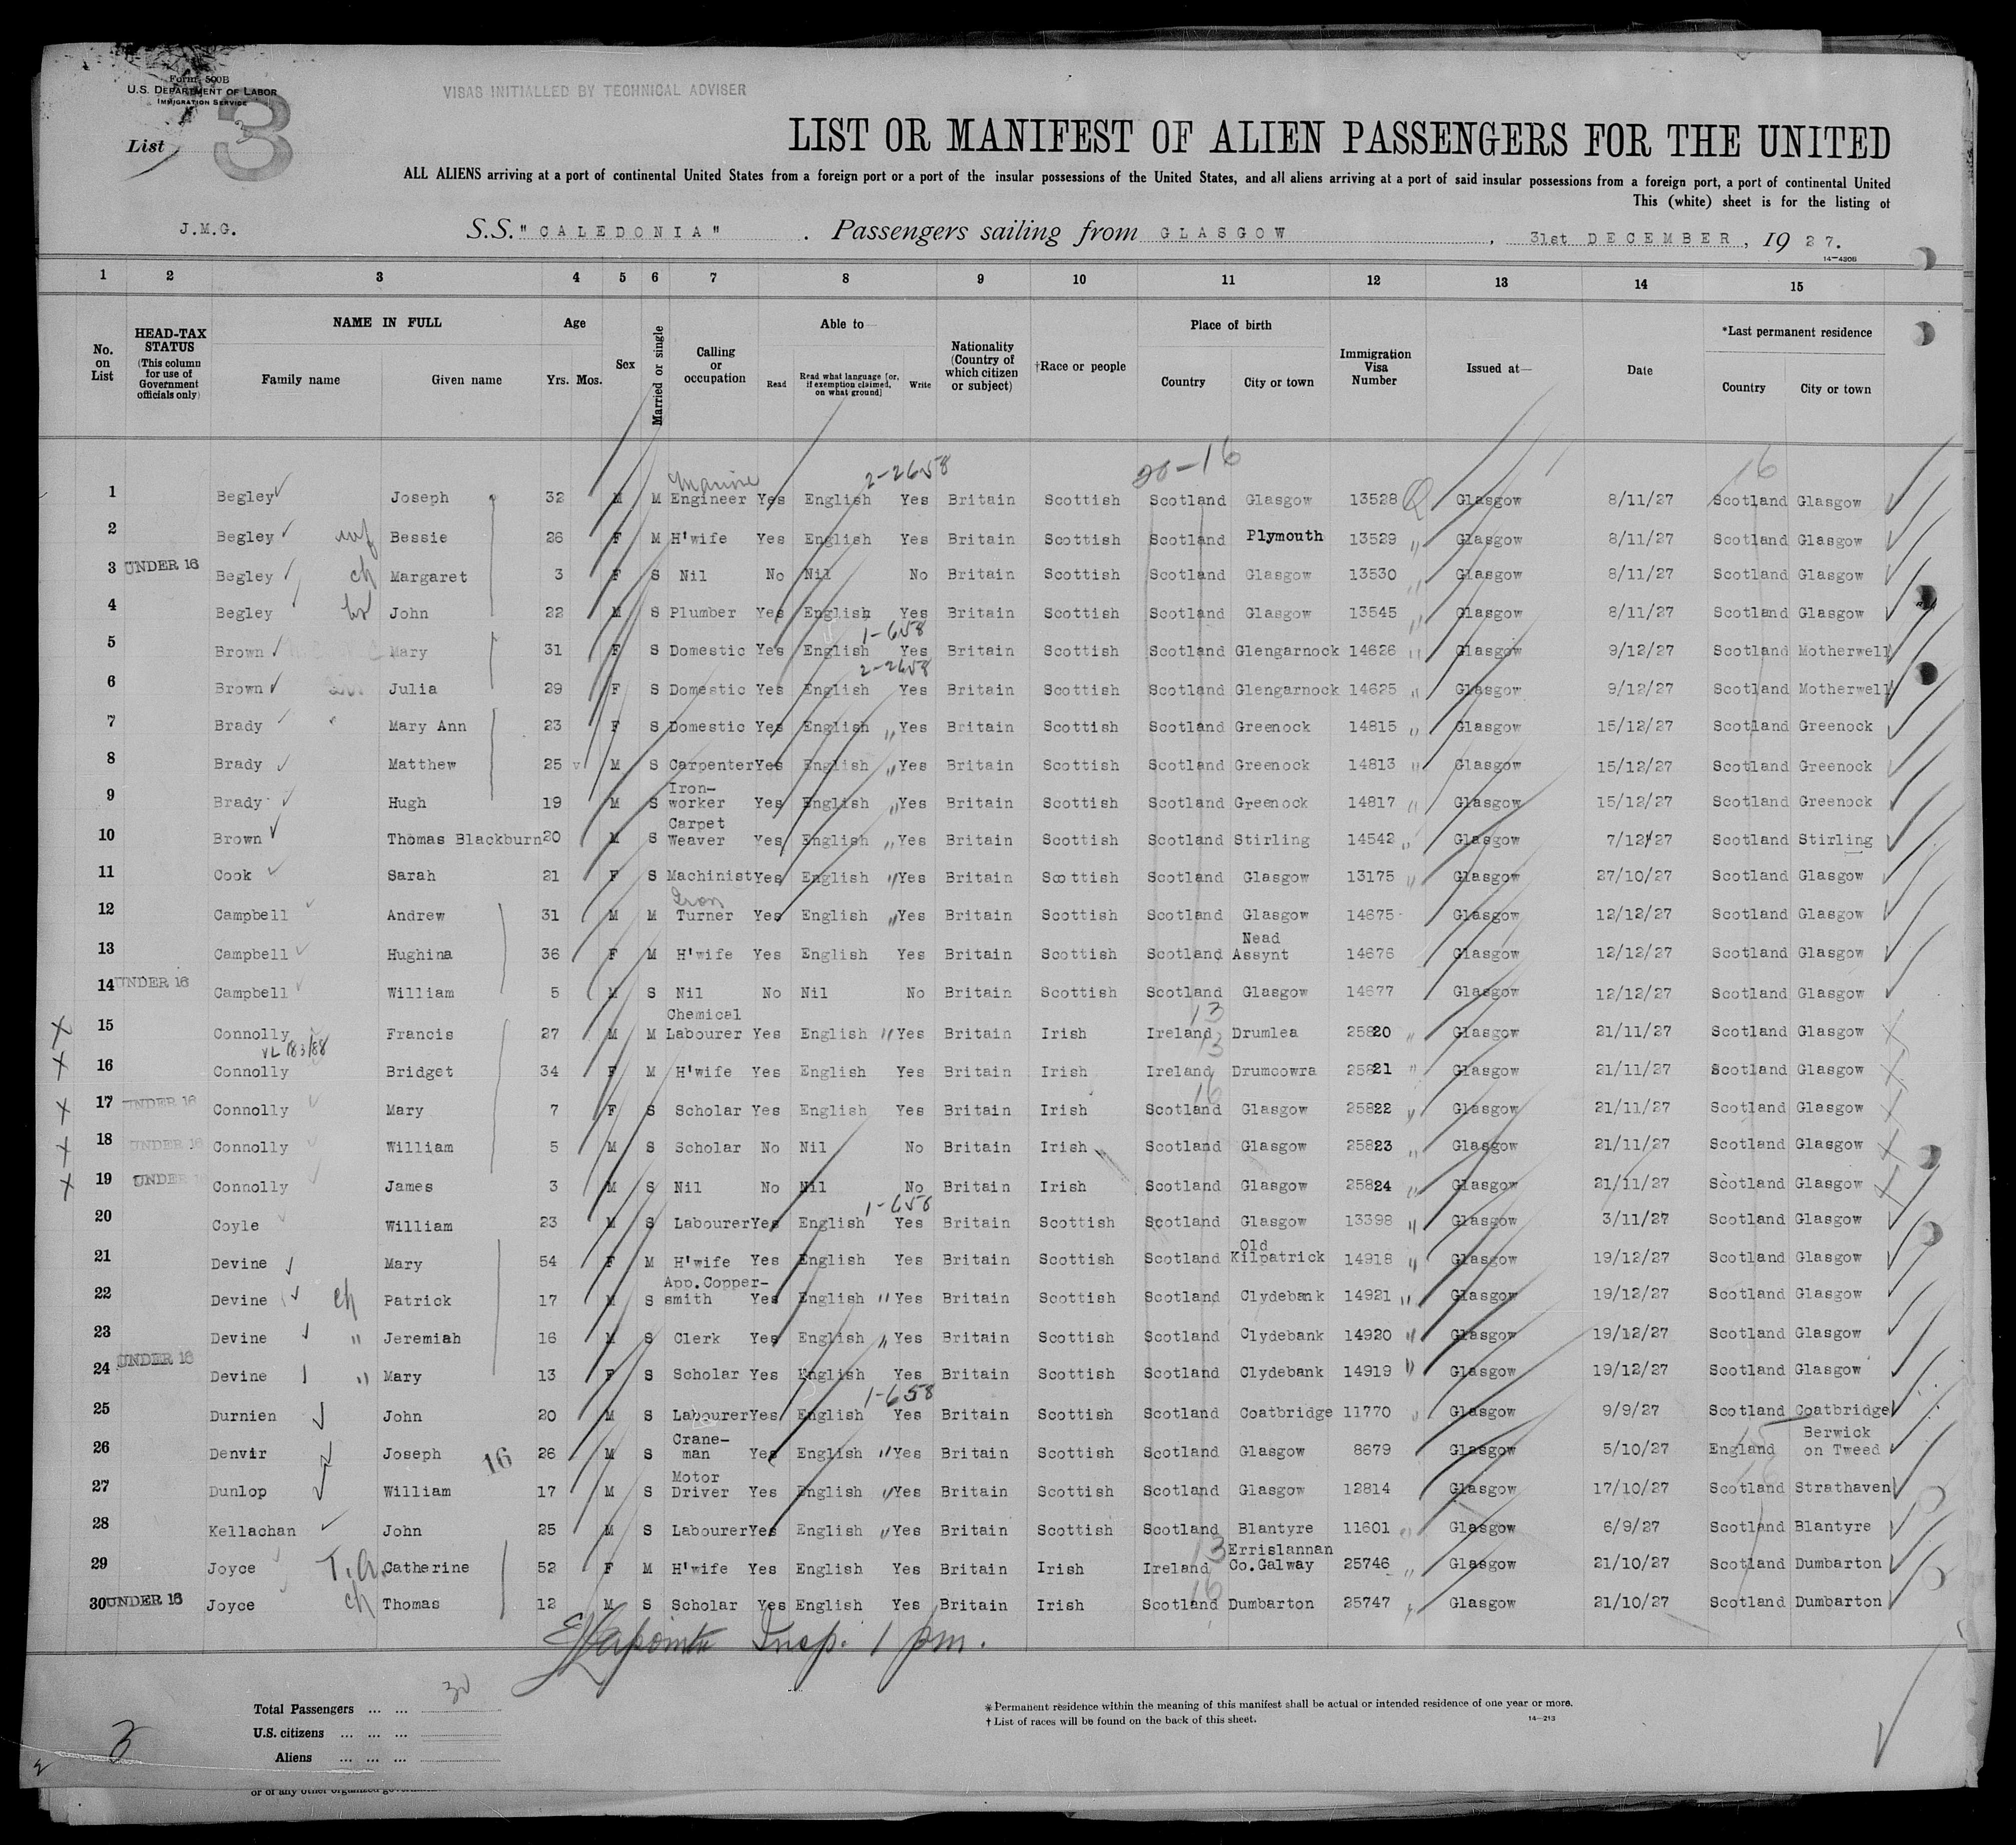 Form 500B
U.S. DEPARTMENT OF LABOR
IMMIGRATION SERVICE
VISAS INITIALLED BY TECHNICAL ADVISER
List 3
LIST OR MANIFEST OF ALIEN PASSENGERS FOR THE UNITED
ALL ALIENS arriving at a port of continental United States from a foreign port or a port of the insular possessions of the United States, and all aliens arriving at a port of said insular possessions from a foreign port, a port of continental United
This (white) sheet is for the listing of
J.M.G. S.S. "CALEDONIA" . Passengers sailing from GLASGOW , 31st DECEMBER , 19 27.
14—4205
1 2 3 4 5 6 7 8 9 10 11 12 13 14 15
No. on List
HEAD-TAX STATUS (This column for use of Government officials only)
NAME IN FULL Family name Given name
Age Yrs. Mos.
Sex
Married or single
Calling or occupation
Able to Read Read what language [or, if exemption claimed, on what ground] Write
Nationality (Country of which citizen or subject)
†Race or people
Place of birth Country City or town
Immigration Visa Number
Issued at—
Date
*Last permanent residence Country City or town
Marine 2-2658 16
1 Begley Joseph 32 M M Engineer Yes English Yes Britain Scottish Scotland Glasgow 13528 Glasgow 8/11/27 Scotland Glasgow
2 Begley wf Bessie 26 F M H'wife Yes English Yes Britain Scottish Scotland Plymouth 13529 " Glasgow 8/11/27 Scotland Glasgow
3 UNDER 16 Begley ch Margaret 3 F S Nil No Nil No Britain Scottish Scotland Glasgow 13530 " Glasgow 8/11/27 Scotland Glasgow
4 Begley br John 22 M S Plumber Yes English Yes Britain Scottish Scotland Glasgow 13545 " Glasgow 8/11/27 Scotland Glasgow
1-658
5 Brown Mary 31 F S Domestic Yes English Yes Britain Scottish Scotland Glengarnock 14626 " Glasgow 9/12/27 Scotland Motherwell
2-2658
6 Brown Julia 29 F S Domestic Yes English Yes Britain Scottish Scotland Glengarnock 14625 " Glasgow 9/12/27 Scotland Motherwell
7 Brady Mary Ann 23 F S Domestic Yes English " Yes Britain Scottish Scotland Greenock 14815 " Glasgow 15/12/27 Scotland Greenock
8 Brady Matthew 25 M S Carpenter Yes English " Yes Britain Scottish Scotland Greenock 14813 " Glasgow 15/12/27 Scotland Greenock
9 Brady Hugh 19 M S Iron-worker Yes English " Yes Britain Scottish Scotland Greenock 14817 " Glasgow 15/12/27 Scotland Greenock
10 Brown Thomas Blackburn 20 M S Carpet Weaver Yes English " Yes Britain Scottish Scotland Stirling 14542 " Glasgow 7/12/27 Scotland Stirling
11 Cook Sarah 21 F S Machinist Yes English " Yes Britain Scottish Scotland Glasgow 13175 " Glasgow 27/10/27 Scotland Glasgow
12 Campbell Andrew 31 M M Iron Turner Yes English " Yes Britain Scottish Scotland Glasgow 14675 Glasgow 12/12/27 Scotland Glasgow
13 Campbell Hughina 36 F M H'wife Yes English Yes Britain Scottish Scotland Nead Assynt 14676 Glasgow 12/12/27 Scotland Glasgow
14 UNDER 16 Campbell William 5 M S Nil No Nil No Britain Scottish Scotland Glasgow 14677 Glasgow 12/12/27 Scotland Glasgow
13
X 15 Connolly Francis 27 M M Chemical Labourer Yes English " Yes Britain Irish Ireland Drumlea 25820 " Glasgow 21/11/27 Scotland Glasgow X
13
X 16 Connolly Bridget 34 F M H'wife Yes English Yes Britain Irish Ireland Drumcowra 25821 " Glasgow 21/11/27 Scotland Glasgow X
16
X 17 UNDER 16 Connolly Mary 7 F S Scholar Yes English Yes Britain Irish Scotland Glasgow 25822 " Glasgow 21/11/27 Scotland Glasgow X
X 18 UNDER 16 Connolly William 5 M S Scholar No Nil No Britain Irish Scotland Glasgow 25823 " Glasgow 21/11/27 Scotland Glasgow X
X 19 UNDER 16 Connolly James 3 M S Nil No Nil No Britain Irish Scotland Glasgow 25824 " Glasgow 21/11/27 Scotland Glasgow X
1-658
20 Coyle William 23 M S Labourer Yes English Yes Britain Scottish Scotland Glasgow 13398 " Glasgow 3/11/27 Scotland Glasgow
21 Devine Mary 54 F M H'wife Yes English Yes Britain Scottish Scotland Old Kilpatrick 14918 " Glasgow 19/12/27 Scotland Glasgow
22 Devine ch Patrick 17 M S App.Copper-smith Yes English " Yes Britain Scottish Scotland Clydebank 14921 " Glasgow 19/12/27 Scotland Glasgow
23 Devine " Jeremiah 16 M S Clerk Yes English " Yes Britain Scottish Scotland Clydebank 14920 " Glasgow 19/12/27 Scotland Glasgow
24 UNDER 16 Devine " Mary 13 F S Scholar Yes English Yes Britain Scottish Scotland Clydebank 14919 " Glasgow 19/12/27 Scotland Glasgow
1-658
25 Durnien John 20 M S Labourer Yes English Yes Britain Scottish Scotland Coatbridge 11770 " Glasgow 9/9/27 Scotland Coatbridge
26 Denvir Joseph 16 26 M S Crane-man Yes English " Yes Britain Scottish Scotland Glasgow 8679 Glasgow 5/10/27 England Berwick on Tweed
27 Dunlop William 17 M S Motor Driver Yes English " Yes Britain Scottish Scotland Glasgow 12814 Glasgow 17/10/27 Scotland Strathaven
28 Kellachan John 25 M S Labourer Yes English " Yes Britain Scottish Scotland Blantyre 11601 " Glasgow 6/9/27 Scotland Blantyre
13
29 Joyce T.A. Catherine 52 F M H'wife Yes English Yes Britain Irish Ireland Errislannan Co.Galway 25746 " Glasgow 21/10/27 Scotland Dumbarton
16
30 UNDER 16 Joyce ch Thomas 12 M S Scholar Yes English Yes Britain Irish Scotland Dumbarton 25747 " Glasgow 21/10/27 Scotland Dumbarton
Insp. 1 pm.
Total Passengers ... ... 30
U.S. citizens ... ... ...
Aliens ... ... ...
* Permanent residence within the meaning of this manifest shall be actual or intended residence of one year or more.
† List of races will be found on the back of this sheet.
14—213
3